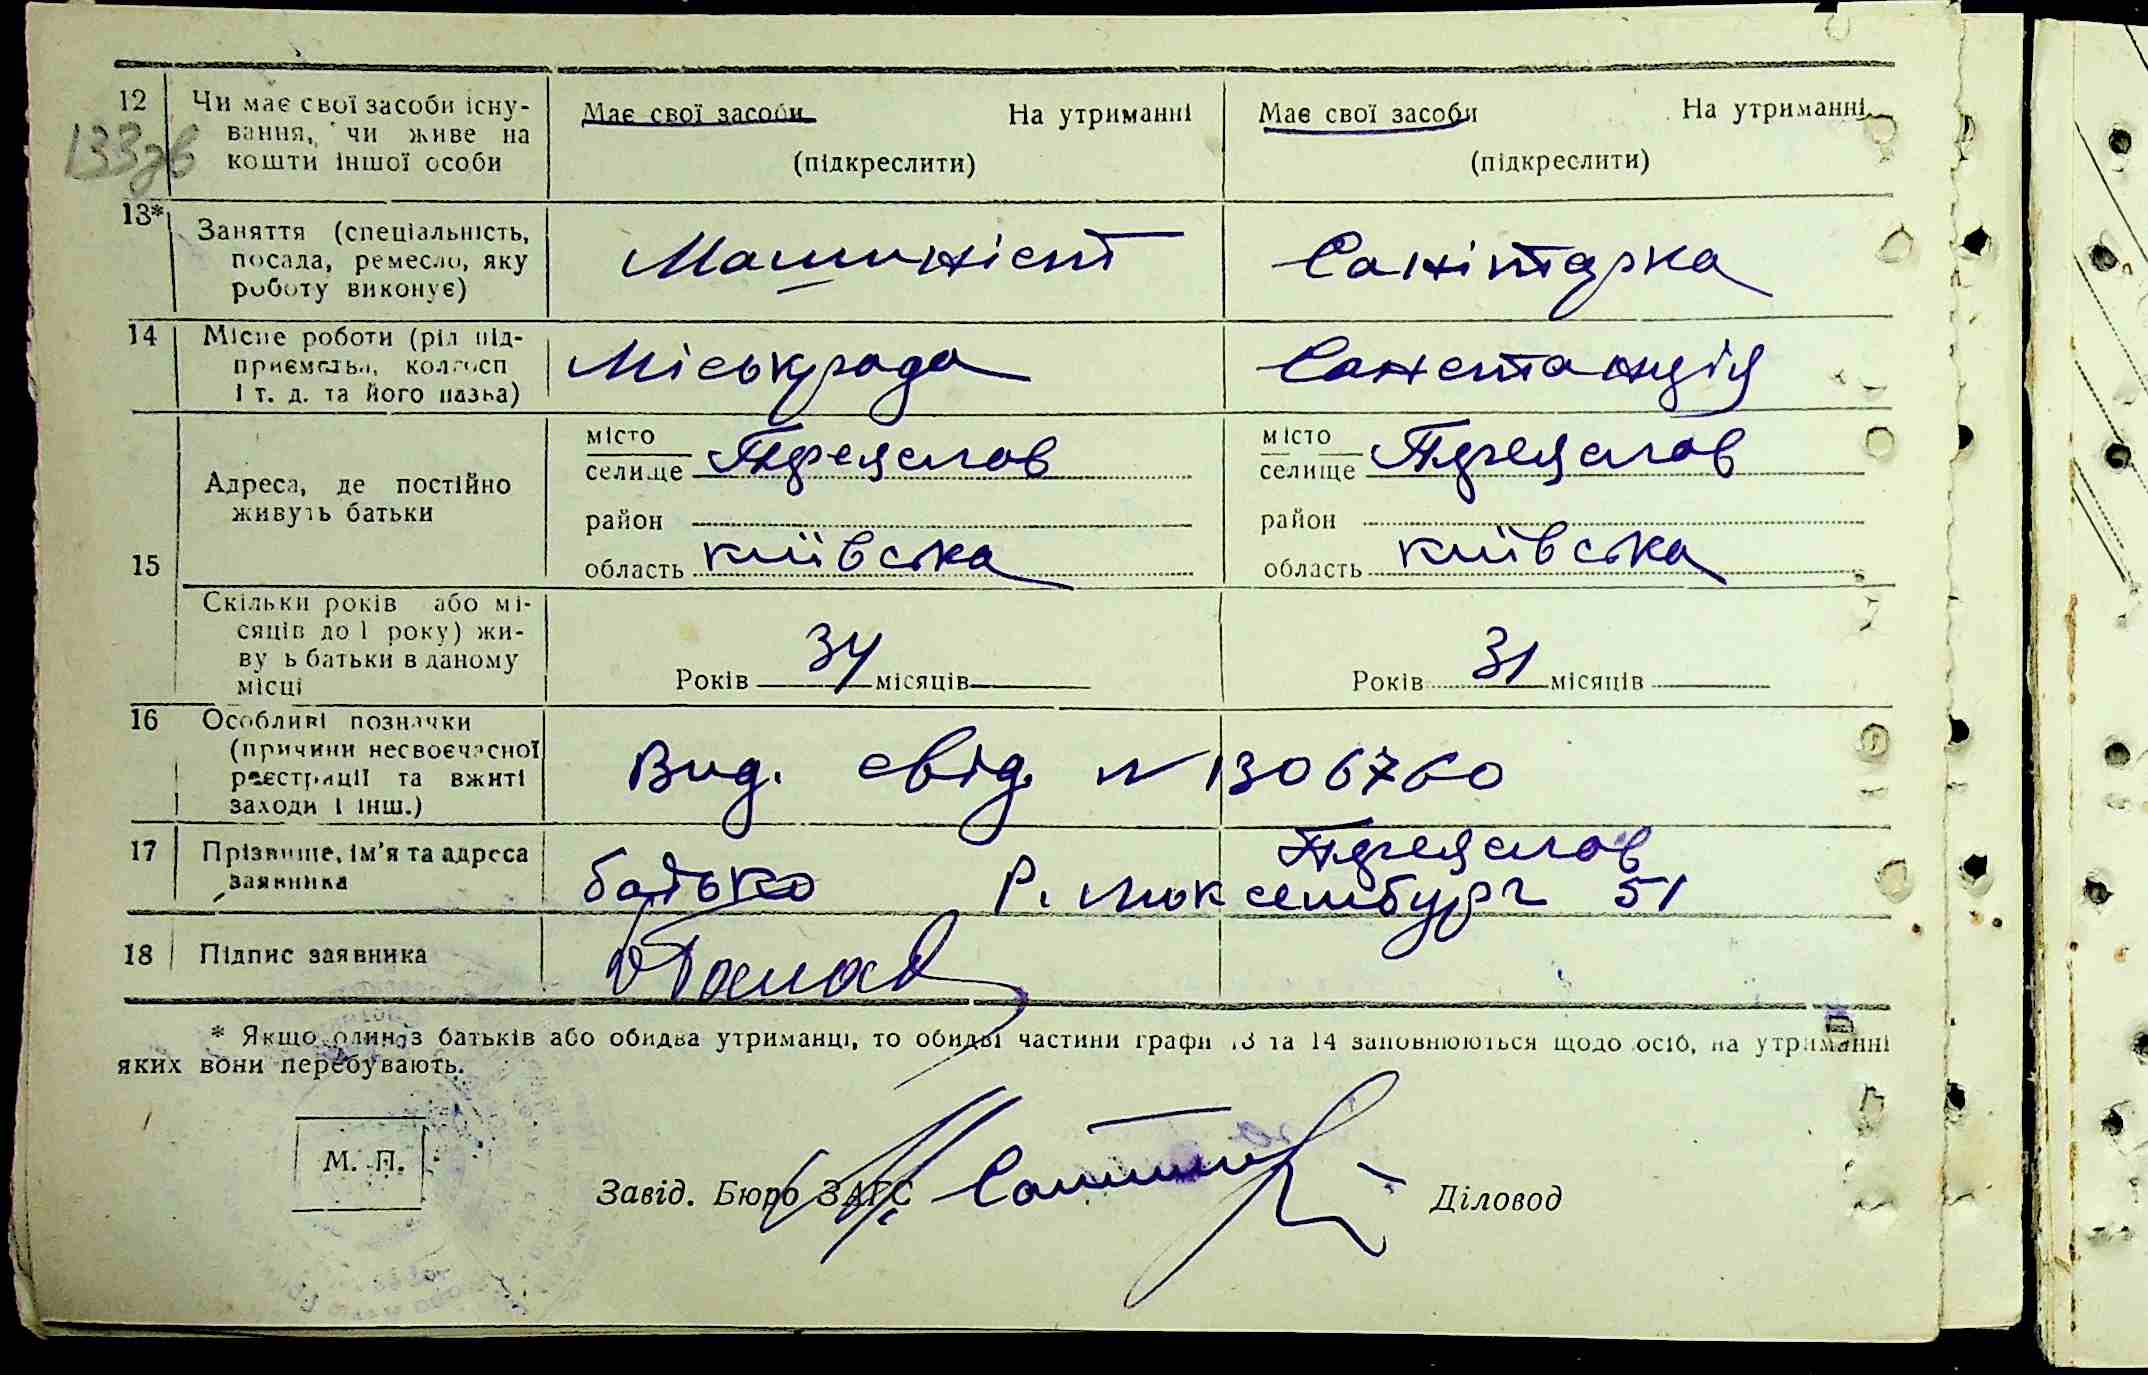 12 Чи має свої засоби існу-
вання, чи живе на
кошти іншої особи
Має свої засоби На утриманні
(підкреслити)
Має свої засоби На утриманні
(підкреслити)
133зв
13* Заняття (спеціальність,
посада, ремесло, яку
роботу виконує)
Машиніст
Санітарка
14 Місце роботи (рід під-
приємства, колгосп
і т. д. та його назва)
Міськрада
Санстанція
15 Адреса, де постійно
живуть батьки
місто
селище Переяслав
район
область київська
місто
селище Переяслав
район
область київська
Скільки років або мі-
сяців до 1 року) жи-
ву ь батьки в даному
місці
Років 34 місяців
Років 31 місяців
16 Особливі позначки
(причини несвоєчасної
реєстрації та вжиті
заходи і інш.)
Вид. свід. N 1306760
17 Прізвище, ім'я та адреса
заявника
Переяслав
батько Р. Люксембург 51
18 Підпис заявника
* Якщо один з батьків або обидва утриманці, то обидві частини графи 13 та 14 заповнюються щодо осіб, на утриманні
яких вони перебувають.
М. П.
Завід. Бюро ЗАГС Діловод